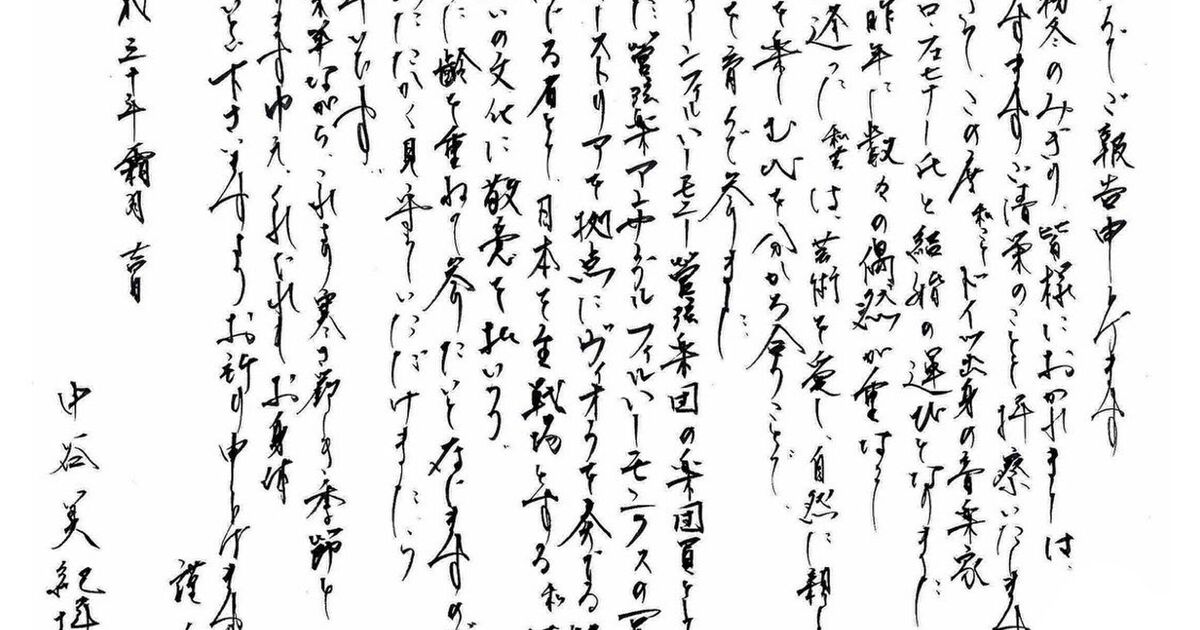 でご報告申し上げます
初冬のみぎり、皆様におかれましては、
ますますご清栄のことと拝察いたします
さて、この度 私こと ドイツ出身の音楽家
ロ・フェヒナー氏と結婚の運びとなりました
昨年に数々の偶然が重なり
逢った私達は、芸術を愛し、自然に親し
を楽しむ心を分かち合うことで
を育んで参りました
ーンフィルハーモニー管弦楽団の楽団員と
た管弦楽アンサンブルフィルハーモニクスの
ーストリアを拠点にヴィオラを奏でる
じる者として、日本を主戦場とする私
いの文化に敬意を払いつつ、
に齢を重ねて参りたいと存じますので
たたかく見守っていただけましたら
幸いです
末筆ながら、これより寒さ厳しき季節と
ますゆえ、くれぐれもお身体
といくださいますようお祈り申し上げます
謹
成三十年霜月吉日
中谷美紀拝